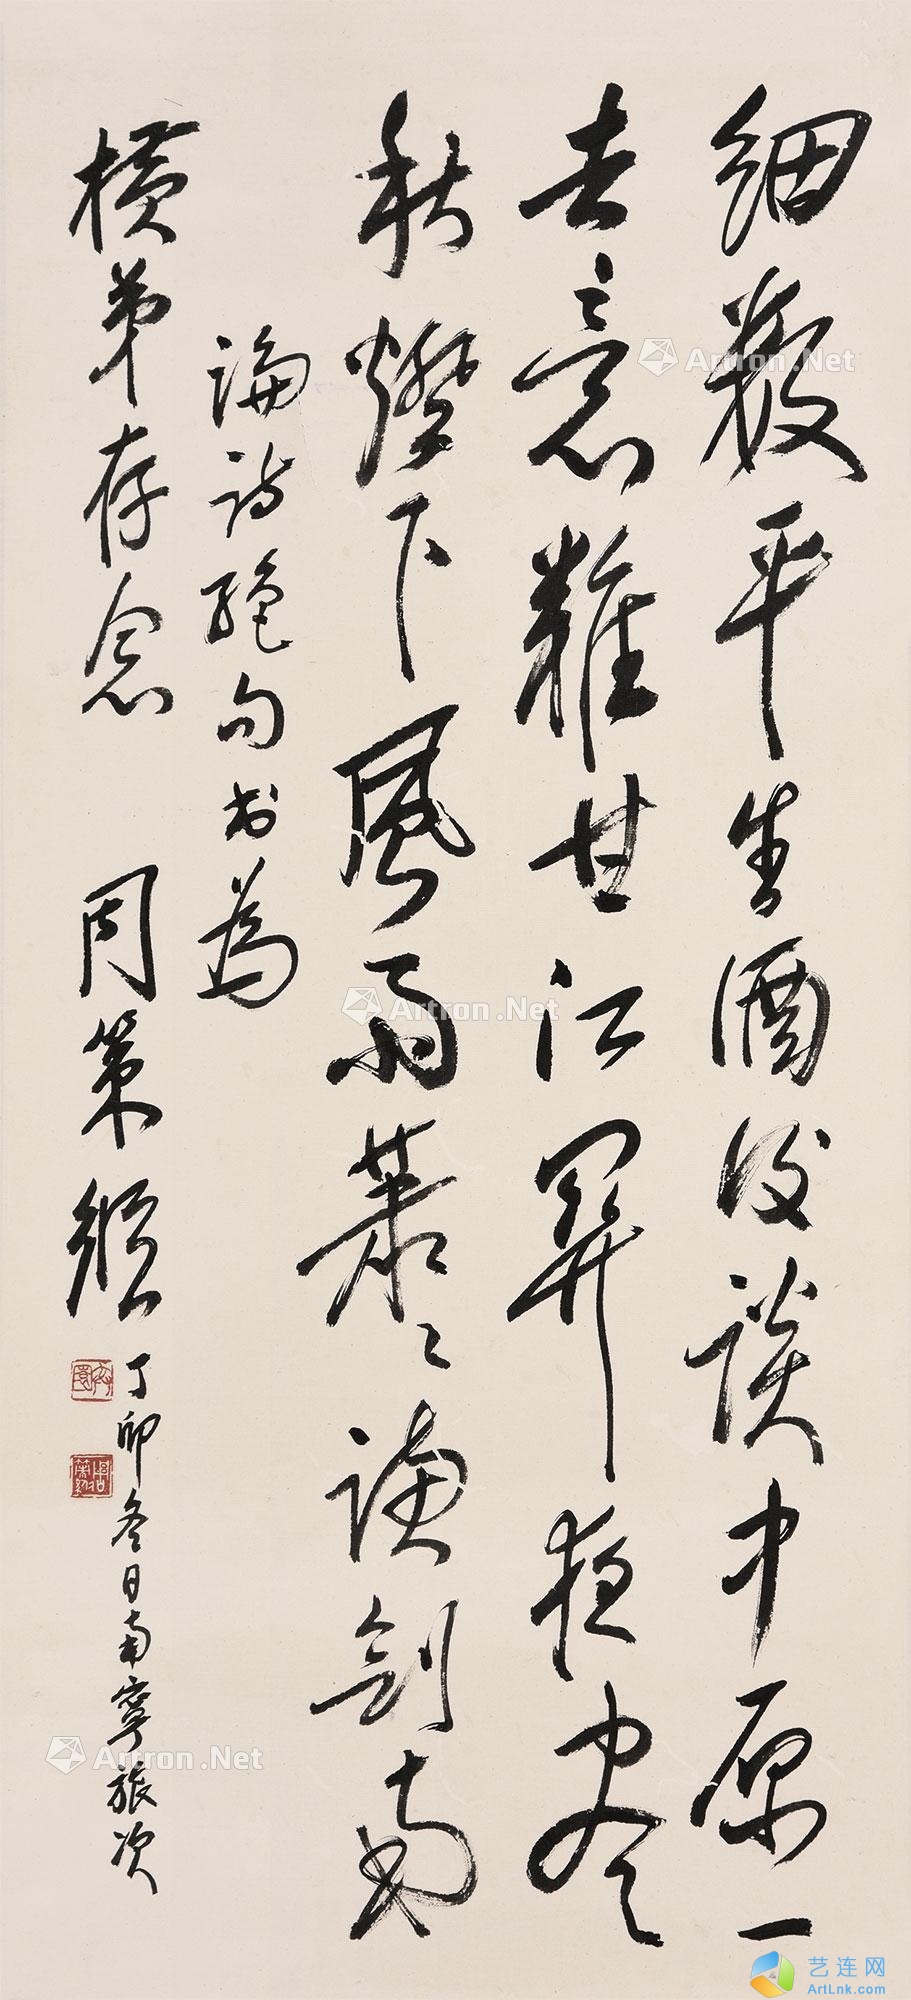 細數平生酒後談中原一
去意難甘江關夜盡
秋燈下風雨蕭〻讀劍南
論詩絕句書為
橫弟存念 周策縱 丁卯冬日南寧旅次
Artron.Net
Artron.Net
Artron.Net
Artron.Net
艺连网
ArtLnk.com